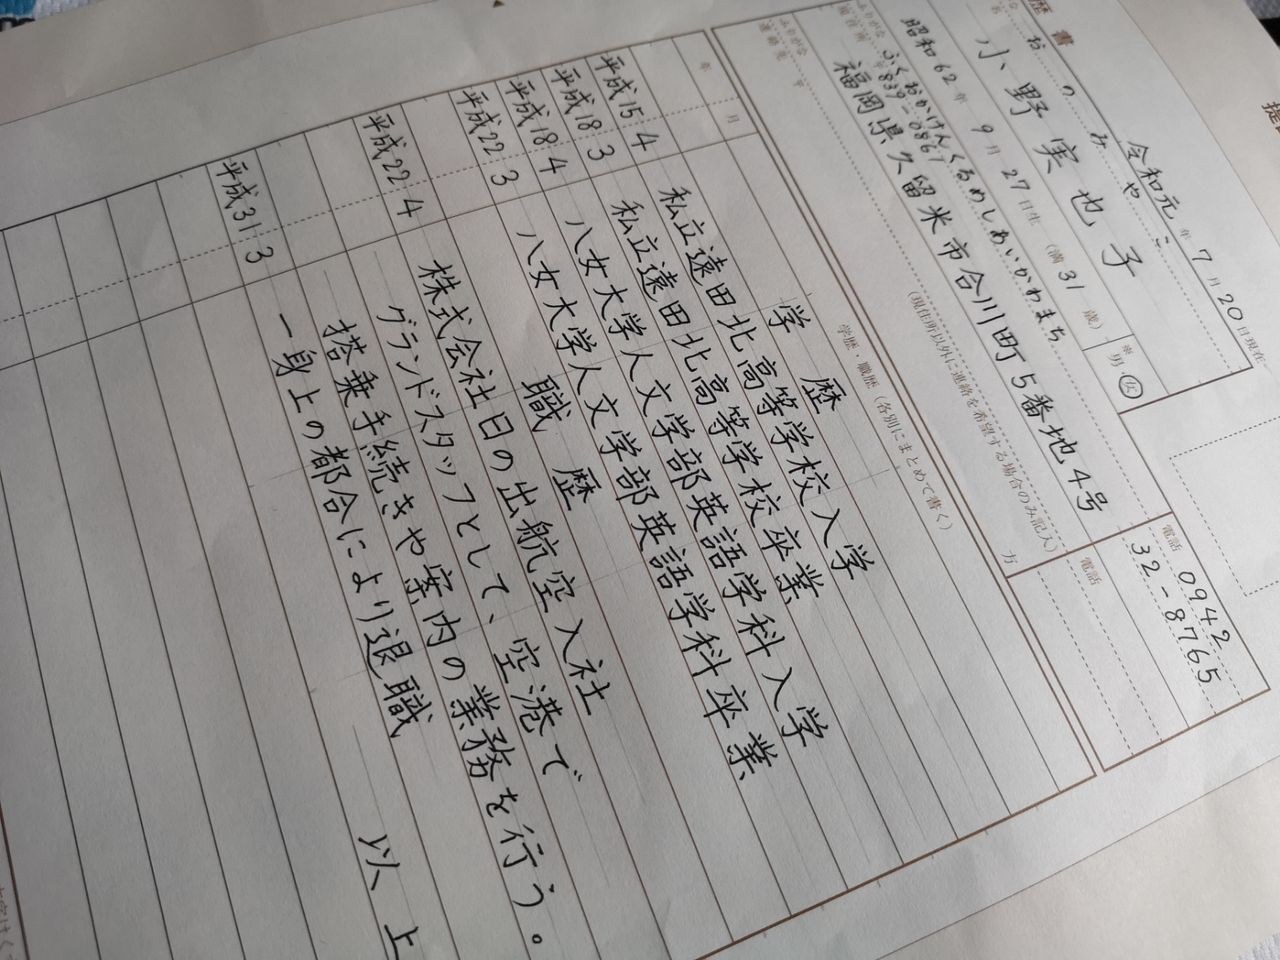 歴書
令和元年7月20日現在
おの みやこ
小野 実也子
昭和62年9月27日生(満31歳)
※男・女
ふりがな ふくおかけんくるめしあいかわまち
〒839-0861
福岡県久留米市合川町5番地4号
電話 0942
32-8765
ふりがな
連絡先 〒
(現住所以外に連絡を希望する場合のみ記入)
方
電話
年 月 学歴・職歴(各別にまとめて書く)
学 歴
平成15 4 私立遠田北高等学校入学
平成18 3 私立遠田北高等学校卒業
平成18 4 八女大学人文学部英語学科入学
平成22 3 八女大学人文学部英語学科卒業
職 歴
平成22 4 株式会社日の出航空入社
グランドスタッフとして、空港で
搭乗手続きや案内の業務を行う。
平成31 3 一身上の都合により退職
以上